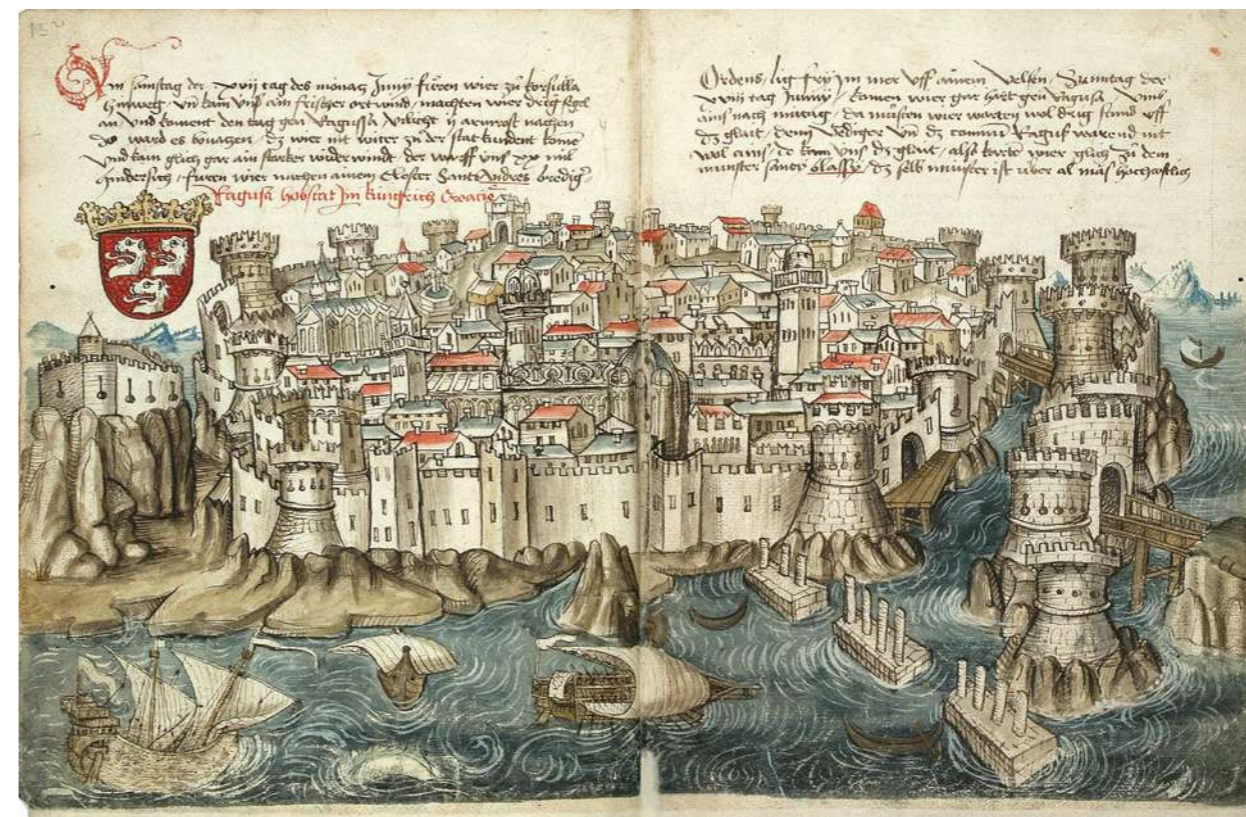 132
An samstag der xvij tag des monatz Junij fůren wier zů korsulla
hinweg vnd kam vnß ain frischer ort wind machten wier drig segel
an vnd koment den tag gen Ragussa vilicht ij armrost nachen
do ward es bonatzen dz wier nit witer zů der stat kundent komē
vnd kam glich gar ain starker widerwind der warff vns xx mil
hindersich fůren wier nachen ainem Closter Sant Andres bredig
Ragusa hobstat Jm kungrich Croacie
Ordens / lig fry Jm mer vff ainem velsen / Sunntag der
xviij tag Junij / komen wier gar hart gen Ragusa vmb
ains nach mitag / da můsten wier warten wol drig stund vff
dz glait / denn Vedigere vnd dz comun Raguß warend nit
wol ains / do kam vns dz glait / also kerte wier glich zů dem
munster sancte blassy / dz selb munster ist vber al mas hochcostlich